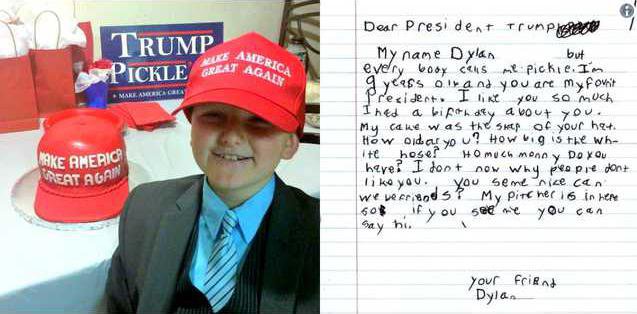 TRUMP
PICKLE
MAKE AMERICA GREAT
MAKE AMERICA
GREAT AGAIN
MAKE AMERICA
GREAT AGAIN
Dear President Trump
My name Dylan but
every body calls me pickle. I'm
9 years old and you are my favorit
President. I like you so much
I hed a birthday about you.
My cake was the shap of your hat.
How old ar you? How big is the wh-
ite hose? Ho much monny Do you
have? I dont now why people dont
like you. You seme nice can
we be friends? My pitcher is in here
so if you see me you can
say hi.
Your friend
Dylan